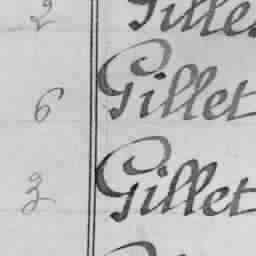 2 Gille
6 Gillet
3 Gillet